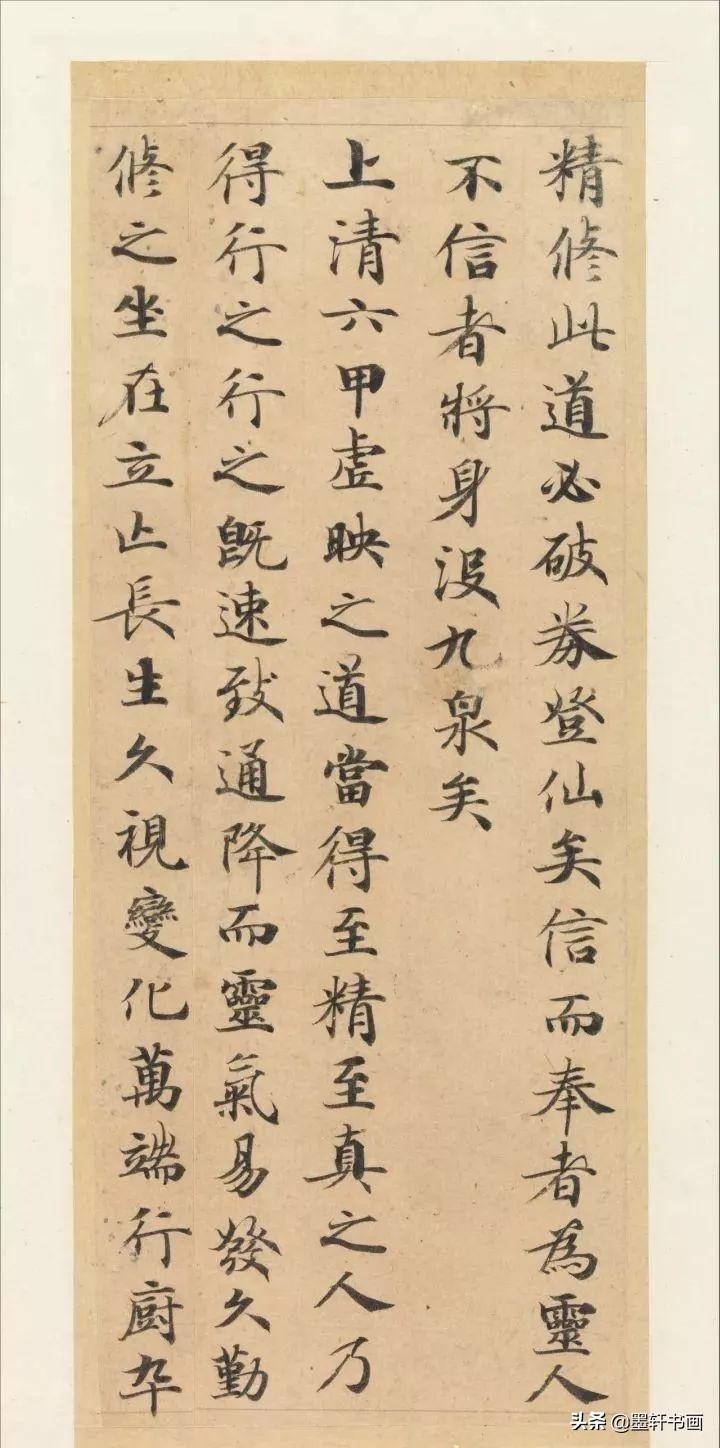 精脩此道必破券登仙矣信而奉者為靈人
不信者將身沒九泉矣
上清六甲虛映之道當得至精至真之人乃
得行之行之既速致通降而靈氣易發久勤
脩之坐在立亡長生久視變化萬端行廚卒
头条 @墨轩书画